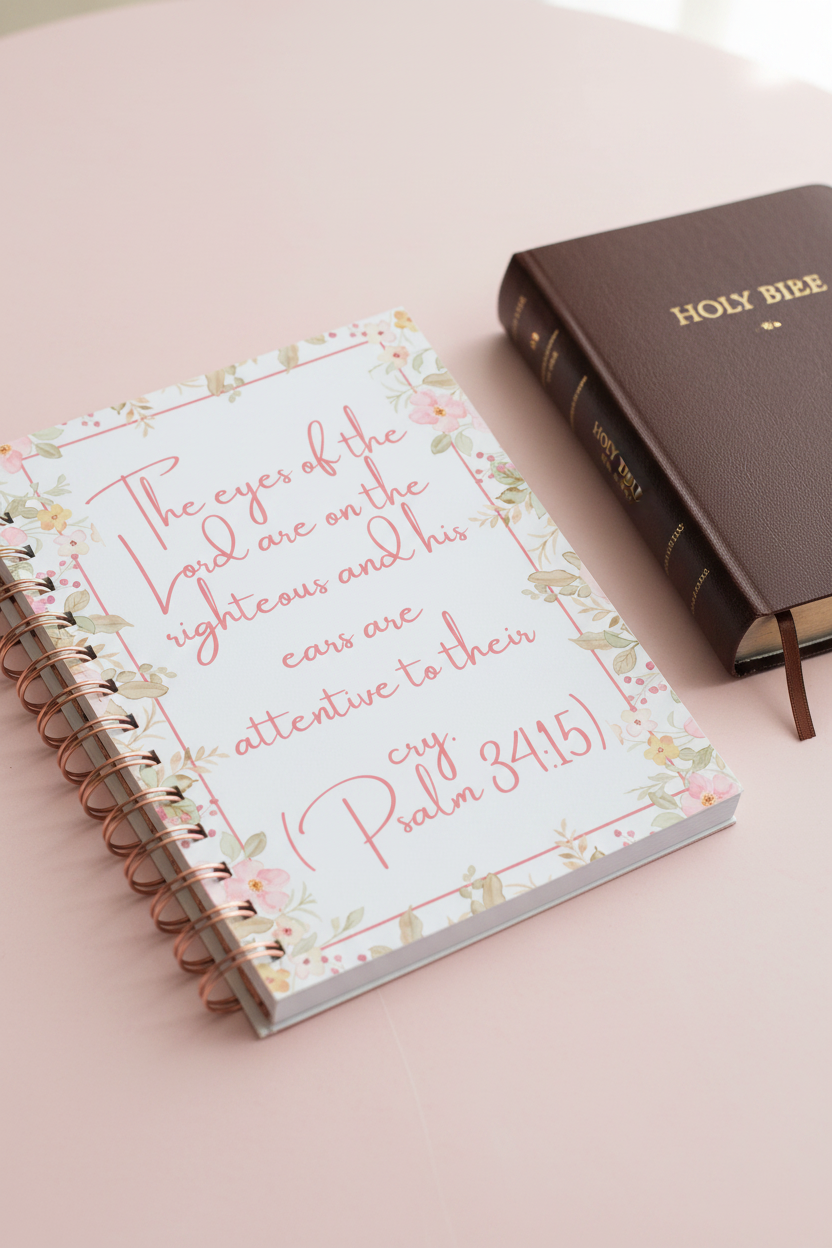 The eyes of the
Lord are on the
righteous and his
ears are
attentive to their
cry.
(Psalm 34:15)
HOLY BIPE
HOLY